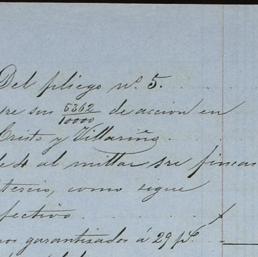 Del pliego nº 5.
tre sus 5362/10000 de accion en
Cristo y Villariño.
de 4 al millar sre fincas
tercio, como sigue
efectivo.
garantizados á 29 p%